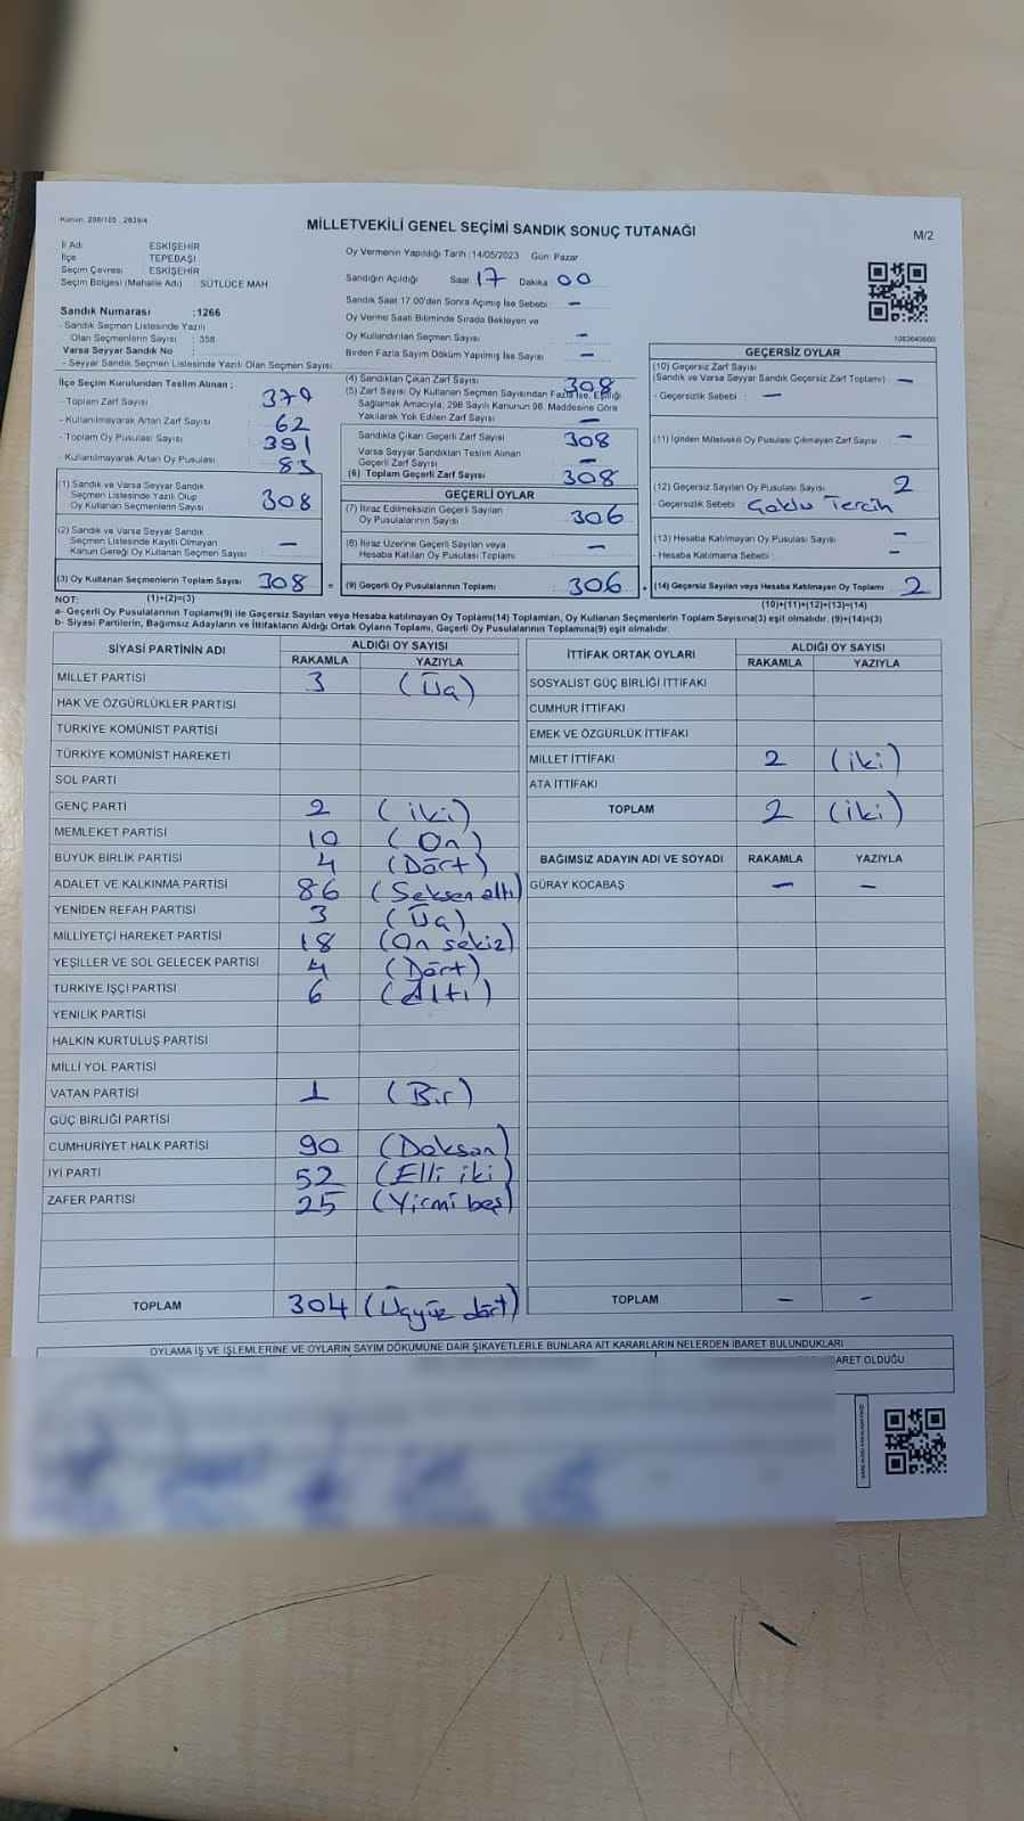 Kanun: 298/105 , 2839/4
MİLLETVEKİLİ GENEL SEÇİMİ SANDIK SONUÇ TUTANAĞI
M/2
İl Adı ESKİŞEHİR
İlçe TEPEBAŞI
Seçim Çevresi ESKİŞEHİR
Seçim Bölgesi (Mahalle Adı) SÜTLÜCE MAH
Sandık Numarası :1266
- Sandık Seçmen Listesinde Yazılı
Olan Seçmenlerin Sayısı : 358
Varsa Seyyar Sandık No :
- Seyyar Sandık Seçmen Listesinde Yazılı Olan Seçmen Sayısı
İlçe Seçim Kurulundan Teslim Alınan ;
- Toplam Zarf Sayısı 379
- Kullanılmayarak Artan Zarf Sayısı 62
- Toplam Oy Pusulası Sayısı 391
- Kullanılmayarak Artan Oy Pusulası 83
(1) Sandık ve Varsa Seyyar Sandık
Seçmen Listesinde Yazılı Olup
Oy Kullanan Seçmenlerin Sayısı 308
(2) Sandık ve Varsa Seyyar Sandık
Seçmen Listesinde Kayıtlı Olmayan
Kanun Gereği Oy Kullanan Seçmen Sayısı —
(3) Oy Kullanan Seçmenlerin Toplam Sayısı 308
Oy Vermenin Yapıldığı Tarih :14/05/2023 Gün: Pazar
Sandığın Açıldığı Saat 17 Dakika 00
Sandık Saat 17.00'den Sonra Açımış İse Sebebi —
Oy Verme Saati Bitiminde Sırada Bekleyen ve
Oy Kullandırılan Seçmen Sayısı —
Birden Fazla Sayım Döküm Yapılmış İse Sayısı —
(4) Sandıktan Çıkan Zarf Sayısı 308
(5) Zarf Sayısı Oy Kullanan Seçmen Sayısından Fazla İse, Eşitliği
Sağlamak Amacıyla; 298 Sayılı Kanunun 98. Maddesine Göre
Yakılarak Yok Edilen Zarf Sayısı —
Sandıkta Çıkan Geçerli Zarf Sayısı 308
Varsa Seyyar Sandıktan Teslim Alınan
Geçerli Zarf Sayısı —
(6) Toplam Geçerli Zarf Sayısı 308
GEÇERLİ OYLAR
(7) İtiraz Edilmeksizin Geçerli Sayılan
Oy Pusulalarının Sayısı 306
(8) İtiraz Üzerine Geçerli Sayılan veya
Hesaba Katılan Oy Pusulası Toplamı —
= (9) Geçerli Oy Pusulalarının Toplamı 306
1083640600
GEÇERSİZ OYLAR
(10) Geçersiz Zarf Sayısı
(Sandık ve Varsa Seyyar Sandık Geçersiz Zarf Toplamı) —
- Geçersizlik Sebebi : —
(11) İçinden Milletvekili Oy Pusulası Çıkmayan Zarf Sayısı —
(12) Geçersiz Sayılan Oy Pusulası Sayısı 2
- Geçersizlik Sebebi Çoklu Tercih
(13) Hesaba Katılmayan Oy Pusulası Sayısı —
- Hesaba Katılmama Sebebi : —
+ (14) Geçersiz Sayılan veya Hesaba Katılmayan Oy Toplamı 2
NOT: (1)+(2)=(3) (10)+(11)+(12)+(13)=(14)
a- Geçerli Oy Pusulalarının Toplamı(9) ile Geçersiz Sayılan veya Hesaba katılmayan Oy Toplamı(14) Toplamları, Oy Kullanan Seçmenlerin Toplam Sayısına(3) eşit olmalıdır. (9)+(14)=(3)
b- Siyasi Partilerin, Bağımsız Adayların ve İttifakların Aldığı Ortak Oyların Toplamı, Geçerli Oy Pusulalarının Toplamına(9) eşit olmalıdır.
SİYASİ PARTİNİN ADI ALDIĞI OY SAYISI
RAKAMLA YAZIYLA
MİLLET PARTİSİ 3 (Üç)
HAK VE ÖZGÜRLÜKLER PARTİSİ
TÜRKİYE KOMÜNİST PARTİSİ
TÜRKİYE KOMÜNİST HAREKETİ
SOL PARTİ
GENÇ PARTİ 2 (iki)
MEMLEKET PARTİSİ 10 (On)
BÜYÜK BİRLİK PARTİSİ 4 (Dört)
ADALET VE KALKINMA PARTİSİ 86 (Seksen altı)
YENİDEN REFAH PARTİSİ 3 (Üç)
MİLLİYETÇİ HAREKET PARTİSİ 18 (On sekiz)
YEŞİLLER VE SOL GELECEK PARTİSİ 4 (Dört)
TÜRKİYE İŞÇİ PARTİSİ 6 (Altı)
YENİLİK PARTİSİ
HALKIN KURTULUŞ PARTİSİ
MİLLİ YOL PARTİSİ
VATAN PARTİSİ 1 (Bir)
GÜÇ BİRLİĞİ PARTİSİ
CUMHURİYET HALK PARTİSİ 90 (Doksan)
İYİ PARTİ 52 (Elli iki)
ZAFER PARTİSİ 25 (Yirmi beş)
TOPLAM 304 (Üçyüz dört)
İTTİFAK ORTAK OYLARI ALDIĞI OY SAYISI
RAKAMLA YAZIYLA
SOSYALİST GÜÇ BİRLİĞİ İTTİFAKI
CUMHUR İTTİFAKI
EMEK VE ÖZGÜRLÜK İTTİFAKI
MİLLET İTTİFAKI 2 (iki)
ATA İTTİFAKI
TOPLAM 2 (iki)
BAĞIMSIZ ADAYIN ADI VE SOYADI RAKAMLA YAZIYLA
GÜRAY KOCABAŞ — —
TOPLAM — —
OYLAMA İŞ VE İŞLEMLERİNE VE OYLARIN SAYIM DÖKÜMÜNE DAİR ŞİKAYETLERLE BUNLARA AİT KARARLARIN NELERDEN İBARET BULUNDUKLARI
BARET OLDUĞU